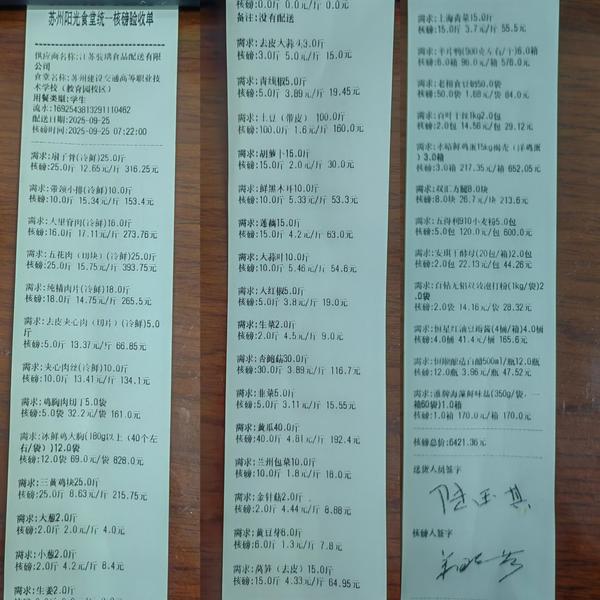 苏州阳光食堂统一核磅验收单
供应商名称:江苏骏瑞食品配送有限
公司
食堂名称:苏州建设交通高等职业技
术学校（教育园校区）
用餐类型:学生
流水:1692543813291110462
配送日期:2025-09-25
核磅时间:2025-09-25 07:22:00
需求:扇子骨(冷鲜)25.0斤
核磅:25.0斤 12.65元/斤 316.25元
需求:带颈小排(冷鲜)10.0斤
核磅:10.0斤 15.34元/斤 153.4元
需求:大里脊肉(冷鲜)16.0斤
核磅:16.0斤 17.11元/斤 273.76元
需求:五花肉（切块）(冷鲜)25.0斤
核磅:25.0斤 15.75元/斤 393.75元
需求:纯精肉片(冷鲜)18.0斤
核磅:18.0斤 14.75元/斤 265.5元
需求:去皮夹心肉（切片）(冷鲜)5.0
斤
核磅:5.0斤 13.37元/斤 66.85元
需求:夹心肉丝(冷鲜)10.0斤
核磅:10.0斤 13.41元/斤 134.1元
需求:鸡胸肉切丁5.0袋
核磅:5.0袋 32.2元/袋 161.0元
需求:冰鲜鸡大胸(180g以上（40个左
右/袋))12.0袋
核磅:12.0袋 69.0元/袋 828.0元
需求:三黄鸡块25.0斤
核磅:25.0斤 8.63元/斤 215.75元
需求:大葱2.0斤
核磅:2.0斤 2.0元/斤 4.0元
需求:小葱2.0斤
核磅:2.0斤 4.2元/斤 8.4元
需求:生姜2.0斤
核磅:0.0斤 0.0元/斤 0.0元
备注:没有配送
需求:去皮大蒜3.0斤
核磅:3.0斤 5.0元/斤 15.0元
需求:青线椒5.0斤
核磅:5.0斤 3.89元/斤 19.45元
需求:土豆（带皮） 100.0斤
核磅:100.0斤 1.6元/斤 160.0元
需求:胡萝卜15.0斤
核磅:15.0斤 2.0元/斤 30.0元
需求:鲜黑木耳10.0斤
核磅:10.0斤 5.33元/斤 53.3元
需求:莲藕15.0斤
核磅:15.0斤 4.2元/斤 63.0元
需求:大蒜叶10.0斤
核磅:10.0斤 5.46元/斤 54.6元
需求:大红椒5.0斤
核磅:5.0斤 3.8元/斤 19.0元
需求:生菜2.0斤
核磅:2.0斤 4.5元/斤 9.0元
需求:杏鲍菇30.0斤
核磅:30.0斤 3.89元/斤 116.7元
需求:韭菜5.0斤
核磅:5.0斤 3.11元/斤 15.55元
需求:黄瓜40.0斤
核磅:40.0斤 4.81元/斤 192.4元
需求:兰州包菜10.0斤
核磅:10.0斤 1.8元/斤 18.0元
需求:金针菇2.0斤
核磅:2.0斤 4.44元/斤 8.88元
需求:黄豆芽6.0斤
核磅:6.0斤 1.3元/斤 7.8元
需求:莴笋（去皮）15.0斤
核磅:15.0斤 4.33元/斤 64.95元
需求:上海青菜15.0斤
核磅:15.0斤 3.7元/斤 55.5元
需求:半片鸭(900克左右/个)6.0箱
核磅:6.0箱 96.0元/箱 576.0元
需求:老相食豆奶50.0袋
核磅:50.0袋 1.68元/袋 84.0元
需求:百叶丁拉1kg2.0包
核磅:2.0包 14.56元/包 29.12元
需求:水站鲜鸡蛋15kg褐壳（洋鸡蛋
）3.0箱
核磅:3.0箱 217.35元/箱 652.05元
需求:双汇方腿8.0块
核磅:8.0块 26.7元/块 213.6元
需求:五得利910小麦粉5.0包
核磅:5.0包 120.0元/包 600.0元
需求:安琪干酵母(20包/箱)2.0包
核磅:2.0包 22.13元/包 44.26元
需求:百钻无铝双效泡打粉(1kg/袋)2
.0袋
核磅:2.0袋 14.16元/袋 28.32元
需求:恒星红油豆瓣酱(4桶/箱)4.0桶
核磅:4.0桶 41.4元/桶 165.6元
需求:恒顺酿造白醋500ml/瓶12.0瓶
核磅:12.0瓶 3.96元/瓶 47.52元
需求:淮牌海藻鲜味盐(350g/袋，一
箱60袋)1.0箱
核磅:1.0箱 170.0元/箱 170.0元
核磅总价:6421.36元
送货人员签字
核磅人签字